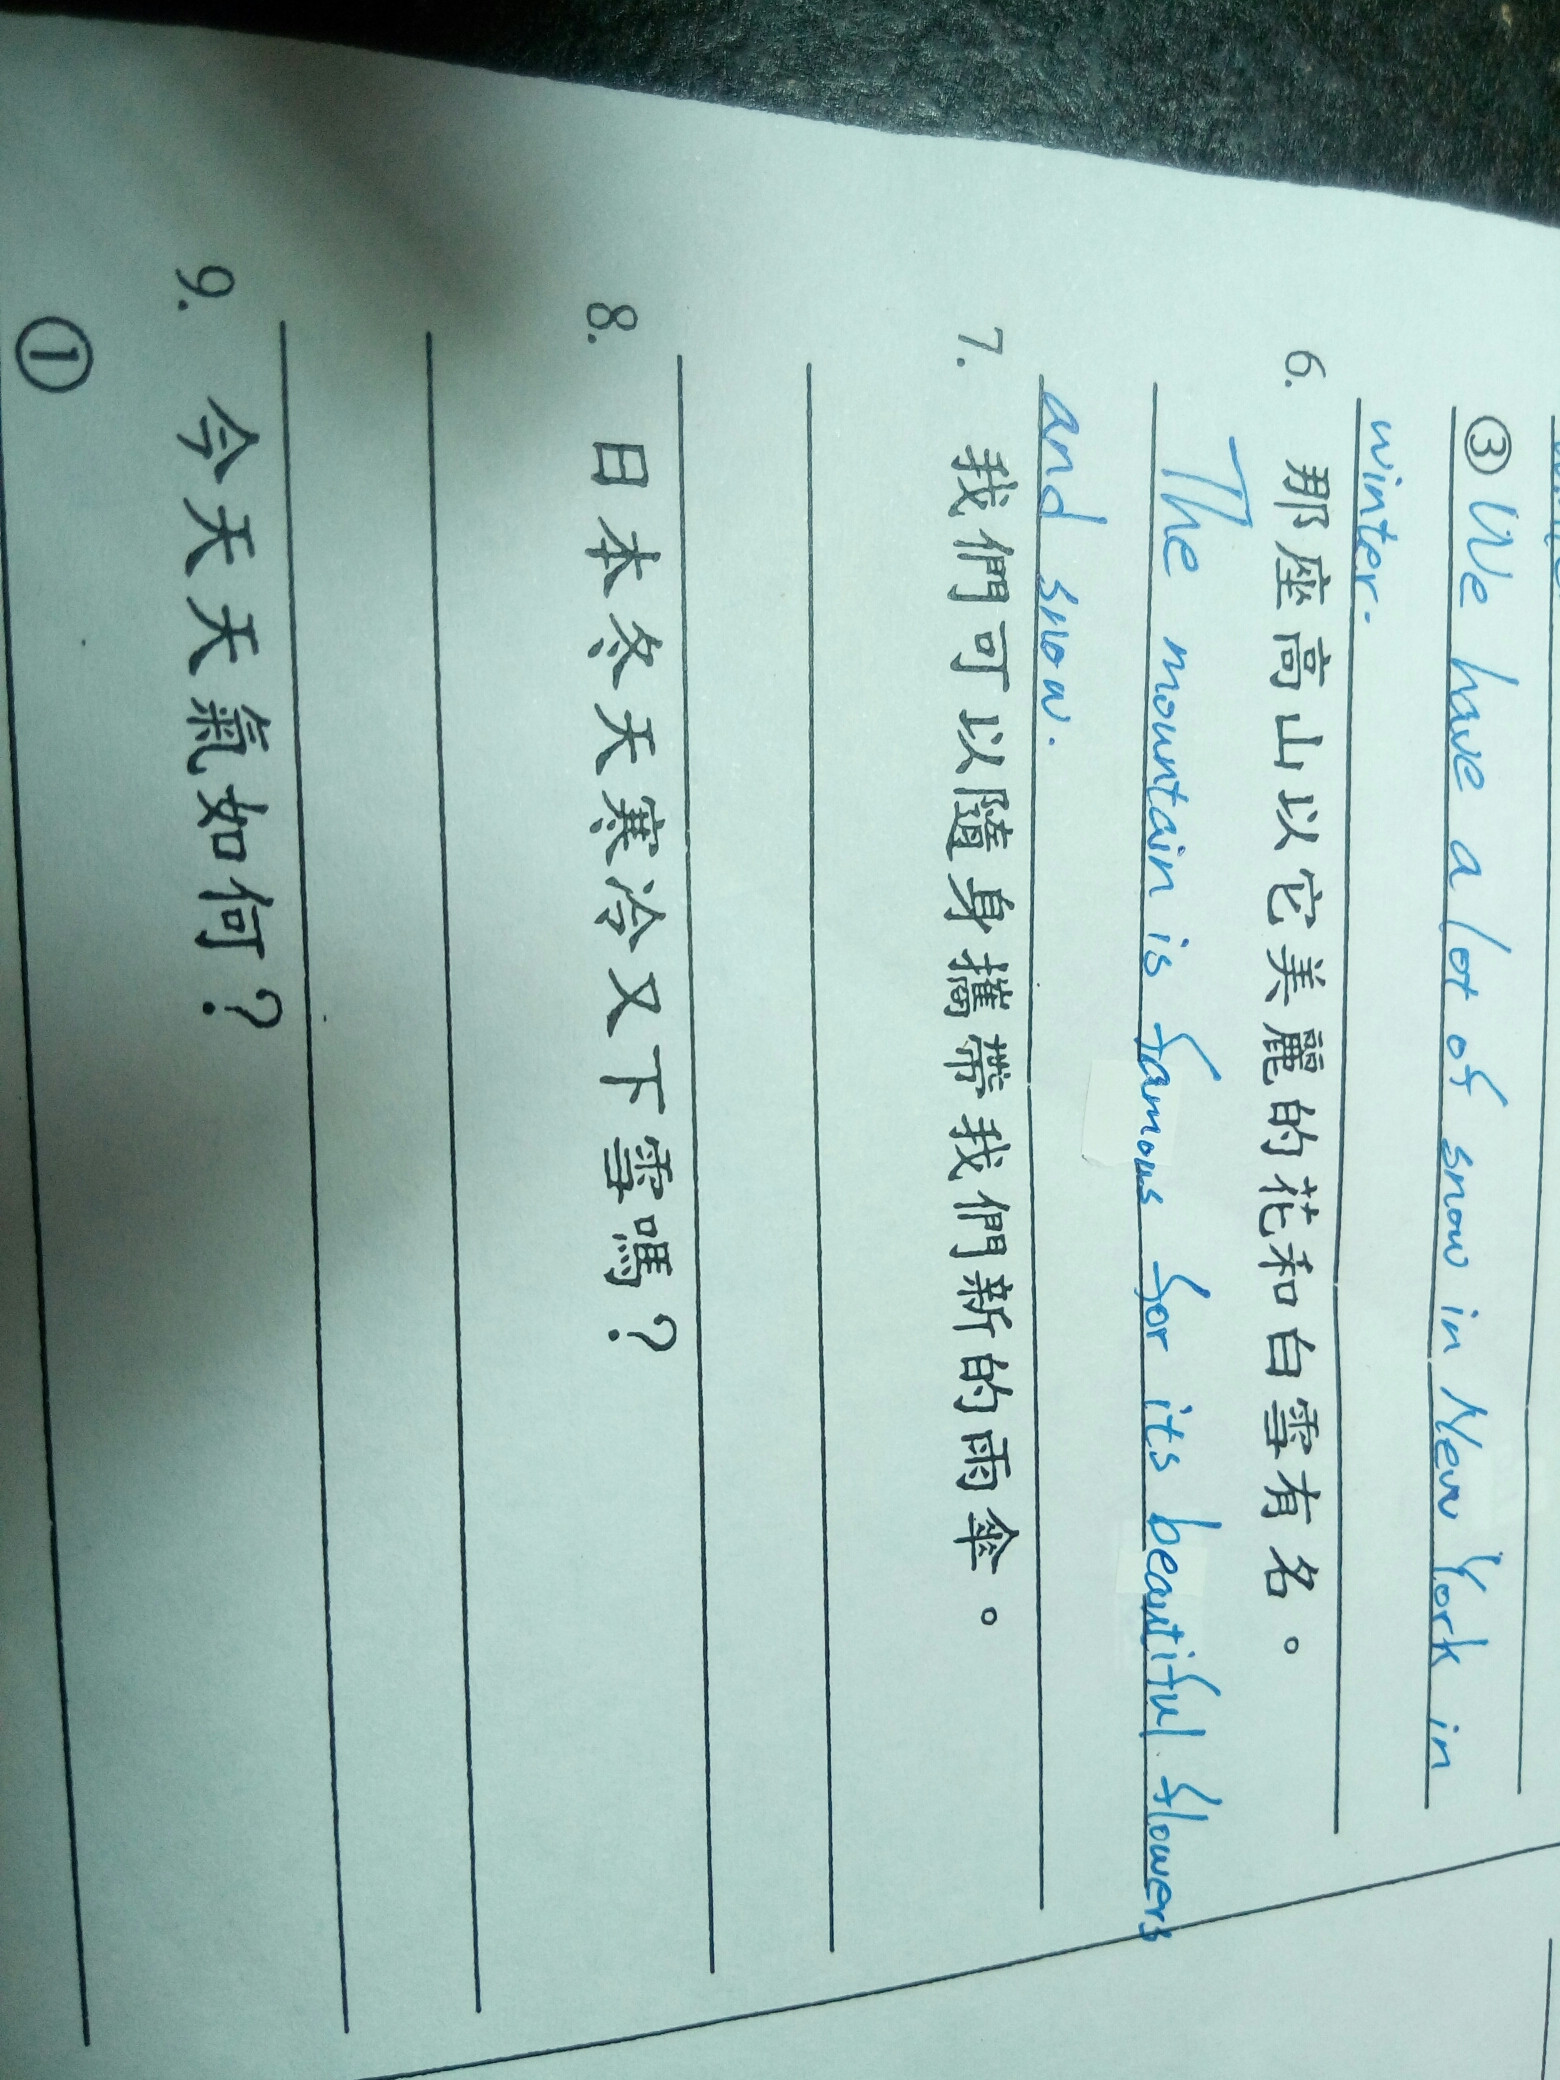 ③ We have a lot of snow in New York in
winter.
6. 那座高山以它美麗的花和白雪有名。
The mountain is famous for its beautiful flowers
and snow.
7. 我們可以隨身攜帶我們新的雨傘。
8. 日本冬天寒冷又下雪嗎?
9. 今天天氣如何?
①